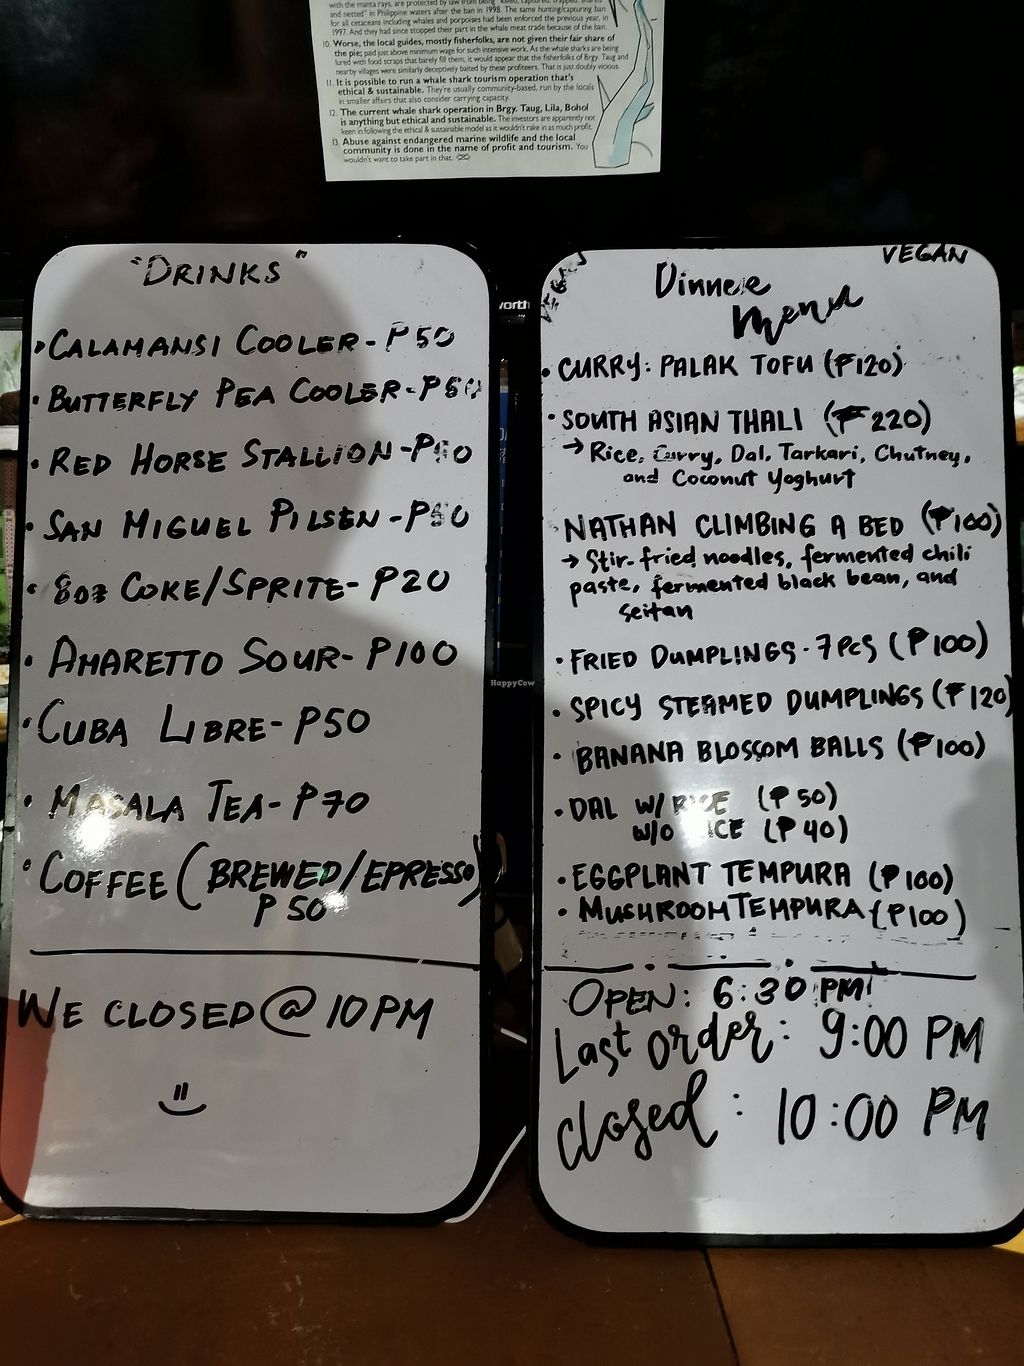 with the manta rays, are protected by law from being "killed, captured, trapped, snared
and netted" in Philippine waters after the ban in 1998. The same hunting/capturing ban
for all cetaceans including whales and porpoises had been enforced the previous year, in
1997. And they had since stopped their part in the whale meat trade because of the ban.
10. Worse, the local guides, mostly fisherfolks, are not given their fair share of
the pie; paid just above minimum wage for such intensive work. As the whale sharks are being
lured with food scraps that barely fill them, it would appear that the fisherfolks of Brgy. Taug and
nearby villages were similarly deceptively baited by these profiteers. That is just doubly vicious.
11. It is possible to run a whale shark tourism operation that's
ethical & sustainable. They're usually community-based, run by the locals
in smaller affairs that also consider carrying capacity.
12. The current whale shark operation in Brgy. Taug, Lila, Bohol
is anything but ethical and sustainable. The investors are apparently not
keen in following the ethical & sustainable model as it wouldn't rake in as much profit.
13. Abuse against endangered marine wildlife and the local
community is done in the name of profit and tourism. You
wouldn't want to take part in that.
"DRINKS"
• CALAMANSI COOLER - P50
• BUTTERFLY PEA COOLER - P60
• RED HORSE STALLION - P
• SAN MIGUEL PILSEN - P
• 8oz COKE/SPRITE - P20
• AMARETTO SOUR - P100
• CUBA LIBRE - P50
• MASALA TEA - P70
• COFFEE (BREWED/EPRESSO)
P50
WE CLOSED @ 10PM
VEGAN
VEGAN
Dinner
menu
• CURRY: PALAK TOFU (₱120)
• SOUTH ASIAN THALI (₱220)
→ Rice, Curry, Dal, Tarkari, Chutney,
and Coconut Yoghurt
• NATHAN CLIMBING A BED (₱100)
→ Stir-fried noodles, fermented chili
paste, fermented black bean, and
seitan
• FRIED DUMPLINGS - 7PCS (₱100)
• SPICY STEAMED DUMPLINGS (₱120)
• BANANA BLOSSOM BALLS (₱100)
• DAL W/ RICE (₱50)
W/O RICE (₱40)
• EGGPLANT TEMPURA (₱100)
• MUSHROOM TEMPURA (₱100)
OPEN: 6:30 PM
Last order: 9:00 PM
closed: 10:00 PM
worth
HappyCow